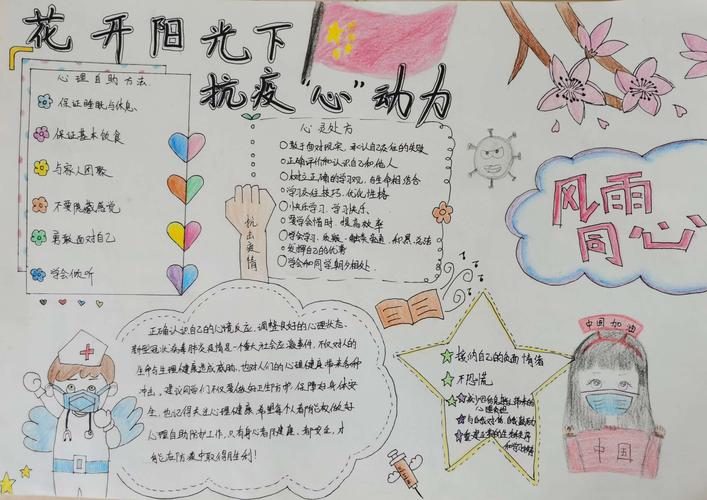 花开阳光下
抗疫“心”动力
心理自助方法
保证睡眠与休息
保证基本饮食
与家人团聚
不要隐藏感觉
勇敢面对自己
学会倾听
心灵处方
敢于面对现实,承认自己
正确评价和认识自己和他人
树立正确的学习观,与生命相结合
学习交往技巧,优化性格
快乐学习,学习快乐
要学会惜时,提高效率
发挥自己的优势
学会和同学朝夕相处
抗击疫情
风雨
同心
正确认识自己的心情反应,调整良好的心理状态
新型冠状病毒肺炎疫情是一个重大社会应激事件,不仅对人的
生命与生理健康造成威胁,也对人们的心理健康带来各种
冲击。建议同学们不仅要做好卫生防护,保障好身体安
全,也记得关注心理健康,希望每个人都能积极做好
心理自助防护工作,只有身心皆健康、都安全,才
能在防疫中取得胜利!
接纳自己的负面情绪
不恐慌
中国加油
中国